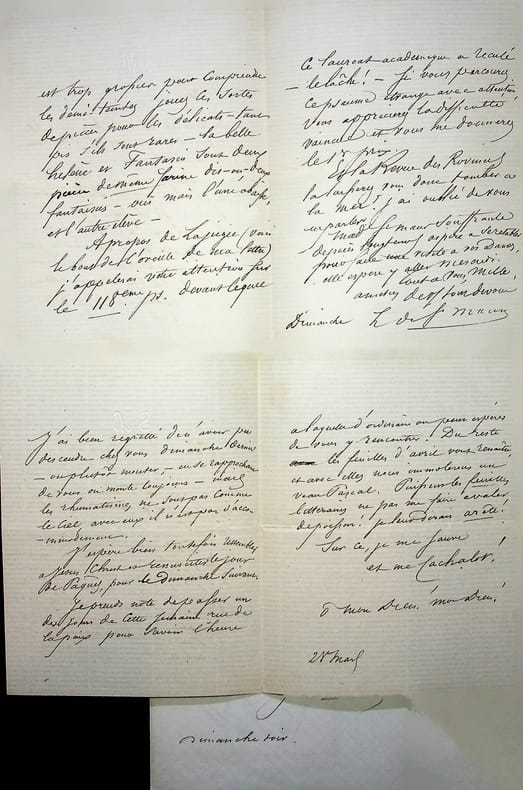 est trop grossier pour comprendre
les demi-teintes
pour les délicats – tant
pis s'ils sont rares – la belle
Hélène et Fantasio sont deux
pièces de même farine dit-on – deux
fantaisies – oui mais l'une abaisse,
et l'autre élève –
A propos de Lajugie (voir
le bout de l'oreille de ma lettre)
j'appellerai votre attention sur
le 118eme ps. devant lequel
Ce lauréat académique a reculé
– le lâche! – Si vous parcourez
ce psaume étrange avec attention
vous apprécierez la difficulté
vaincue et vous me donnerez
le 1er prix
Et la Revue des Provinces
la laisserez vous donc tomber à
la mer? j'ai oublié de vous
en parler.
Made de St maur souffrante
depuis longtemps aspire à se rétablir
pour faire une visite à vos Dames.
elle espère y aller mercredi.
Tout à vous, Mille
amitiés de vos tout dévoué
Dimanche H de St Maur
J'ai bien regretté de n'avoir pu
descendre chez vous dimanche dernier
– ou plutôt monter, – en se rapprochant
de vous on monte toujours – mais
les rhumatismes ne sont pas comme
le Ciel, avec eux il n'est pas d'acco-
-mmodement.
J'espère bien toutefois ressembler
à Jésus Christ et ressusciter le jour
de Pâques, pour le dimanche suivant.
Je prends note de passer un
des jours de cette semaine rue de
la paix pour savoir l'heure
à laquelle d'ordinaire on peut espérer
de vous y rencontrer. Du reste
les feuilles d'avril vont renaître
et avec elles nous immolerons un
veau Pascal. Puissent les feuilles
littéraires ne pas me faire avaler
de poisson! je leur dirais arête!
Sur ce, je me sauve
et me Cachalot!
O mon Dieu! mon Dieu!
28 Mars
Dimanche soir.